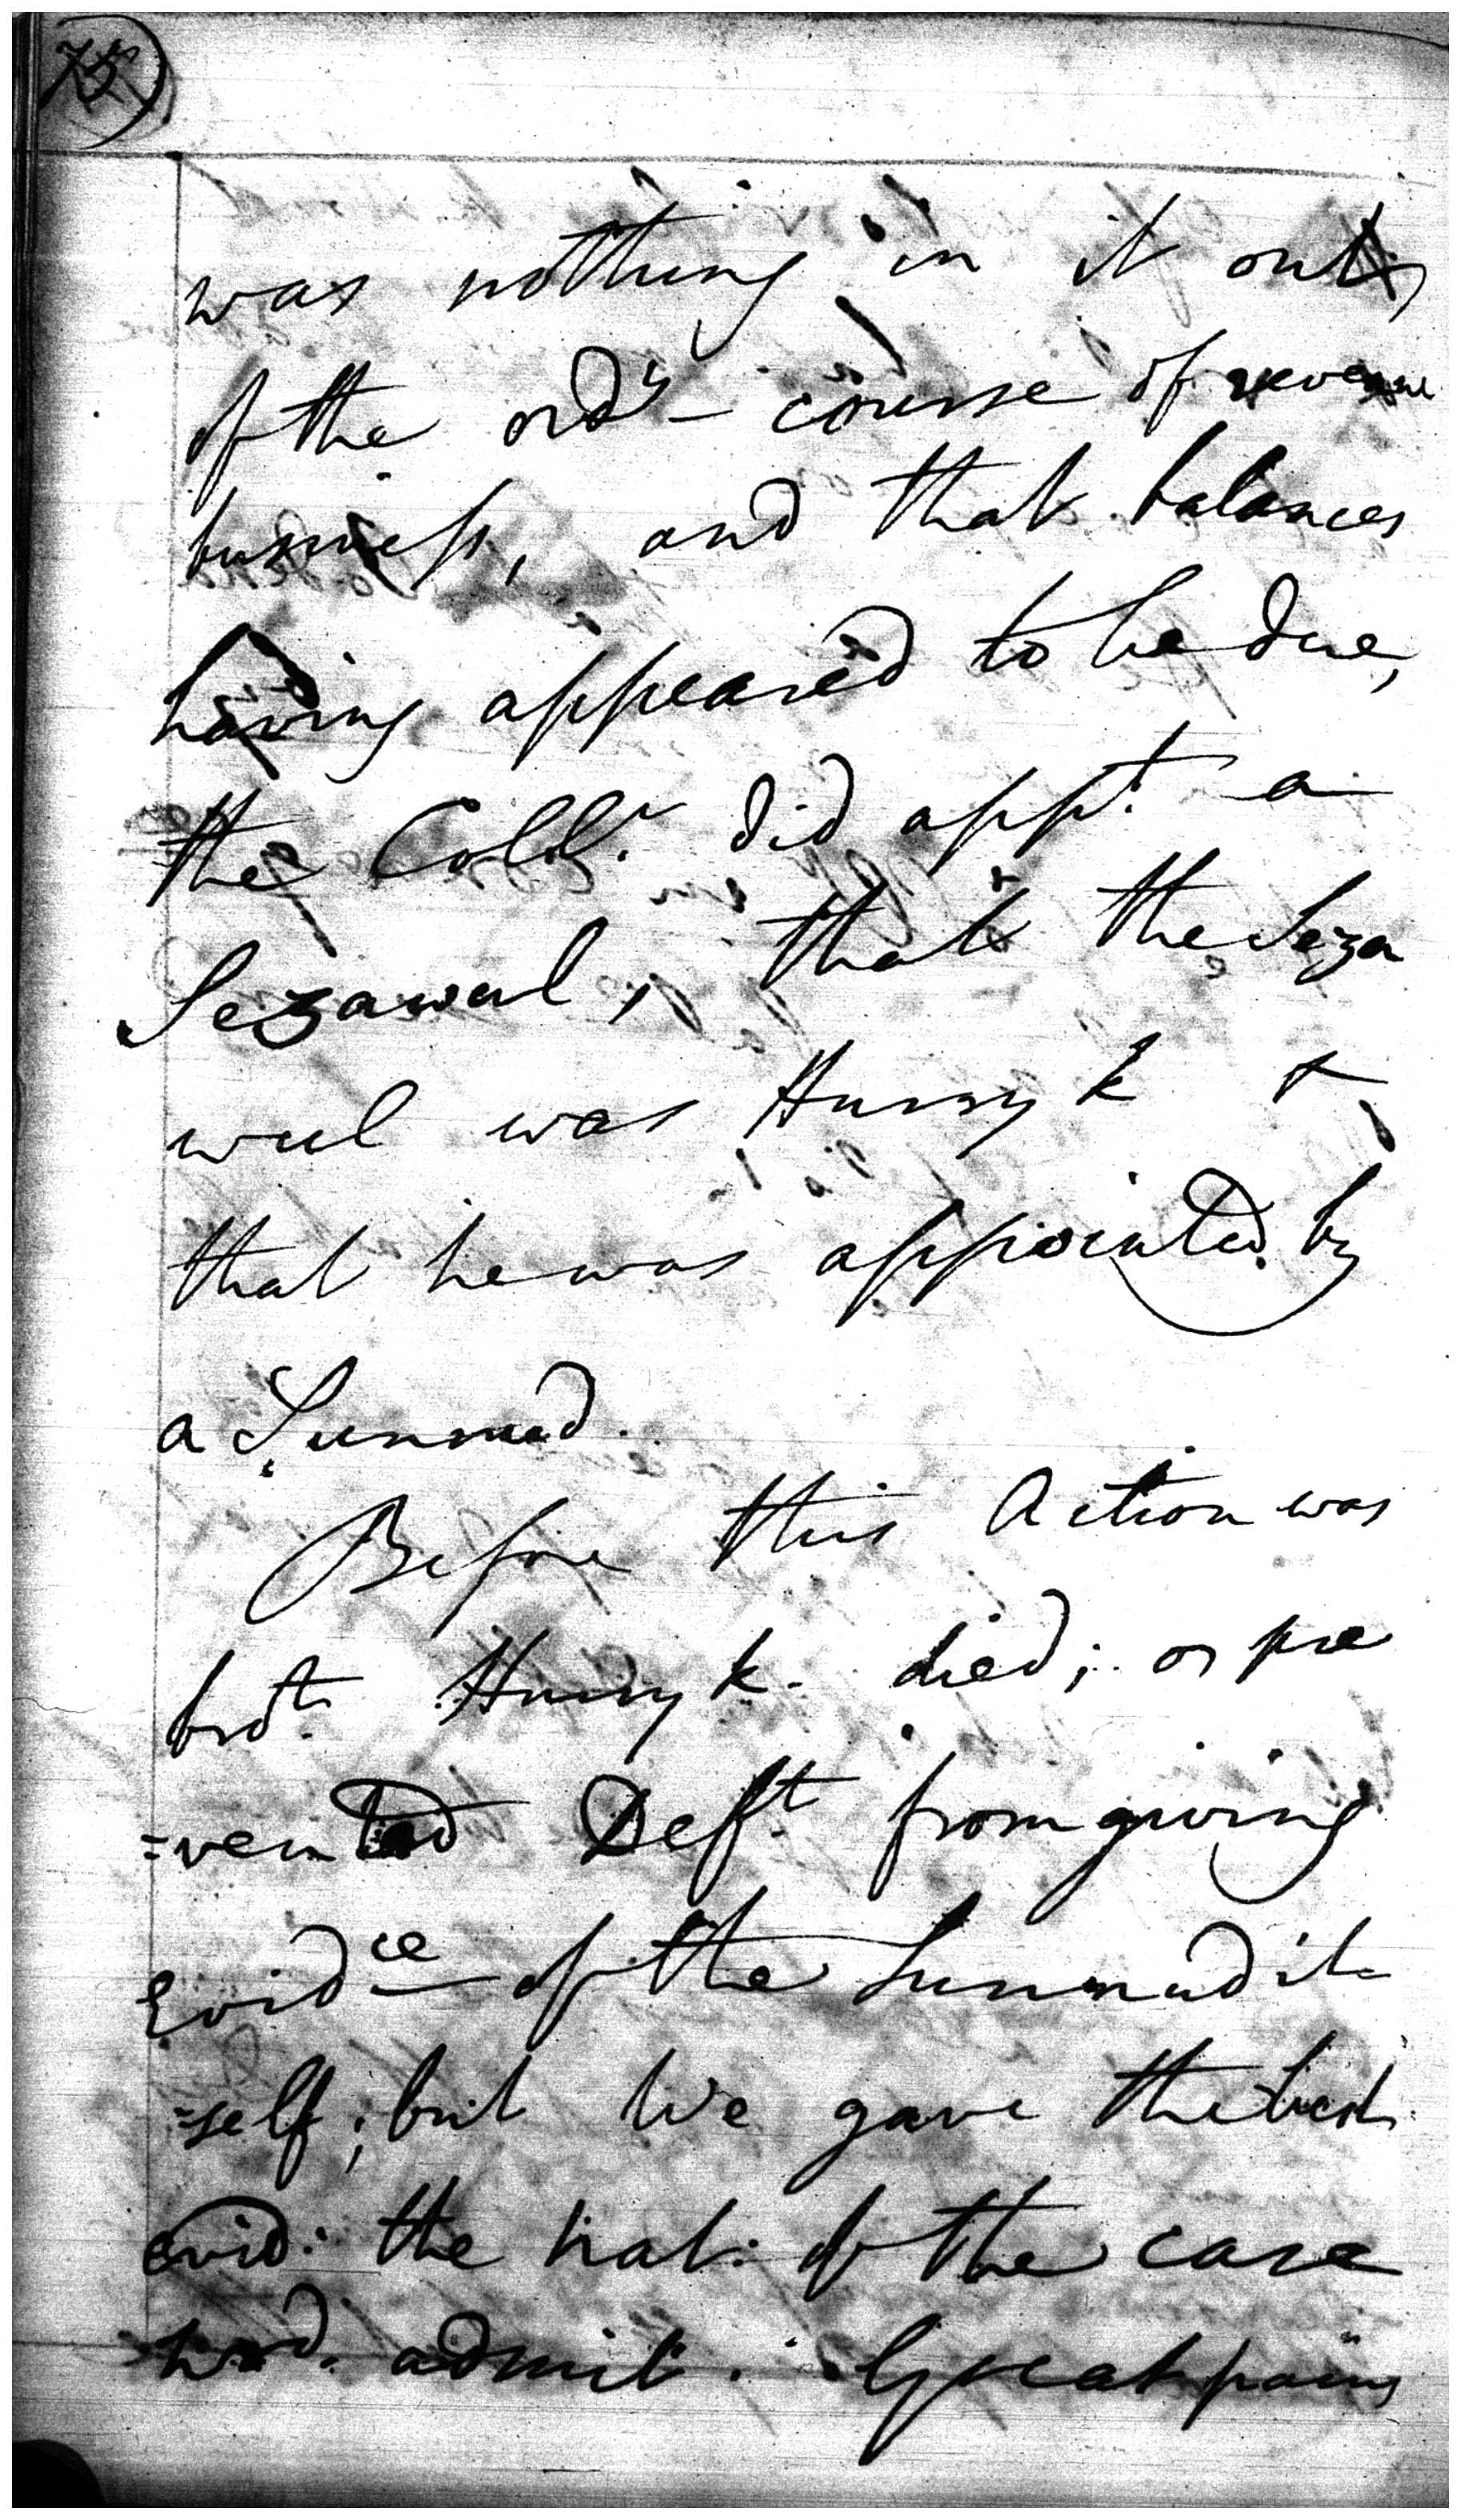 75
was nothing in it out
of the ordy course of revenue
business, and that balances
having appeared to be due,
the Collr. did appt. a
Sezawul, that the Seza
wul was Hurry k &
that he was appointed by
a Sunnud.
Before this Action was
brot. Hurry k. died; or pre
=vented Deft. from giving
Evidce of the Sunnud it
=self; but We gave the best
evid: the nat: of the case
wod. admit. Great pains